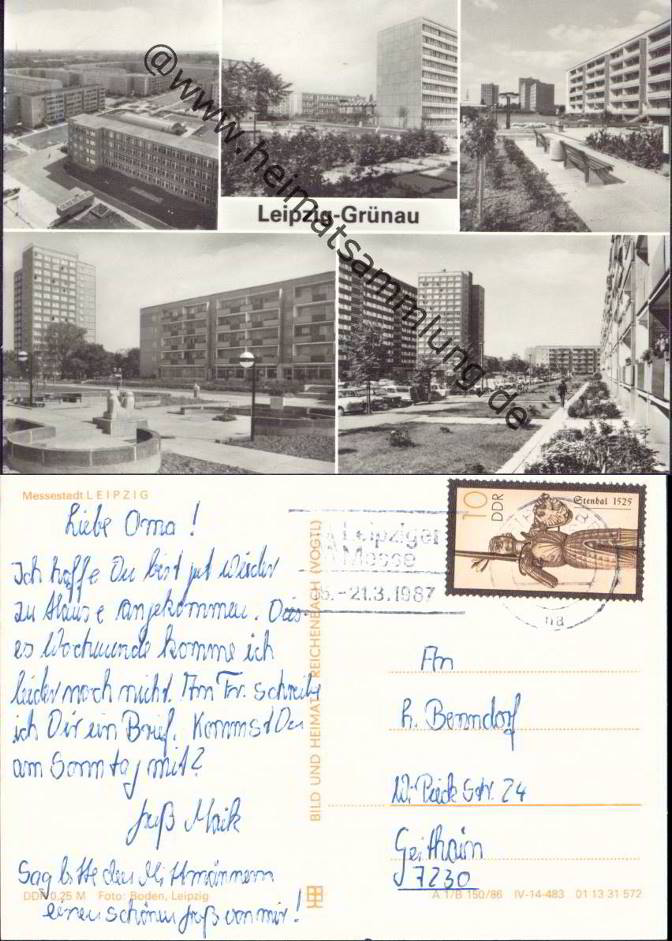 @www.heimatsammlung.de
Leipzig-Grünau
Messestadt LEIPZIG
Liebe Oma!
Ich hoffe Du bist gut wieder
zu Hause angekommen. Dies-
es Wochenende komme ich
leider noch nicht. Am Fr. schreibe
ich Dir ein Brief. Kommst Du
am Sonntag mit?
Gruß Maik
Sag bitte den Mittmännern
einen schönen Gruß von mir!
DDR 0,25 M Foto: Boden, Leipzig
BILD UND HEIMAT REICHENBACH (VOGTL)
Leipziger
Messe
15.–21.3.1987
10
DDR
Stendal 1525
An
h. Benndorf
W. Pieck Str. 24
Geithain
7230
A 1/B 150/86 IV-14-483 01 13 31 572